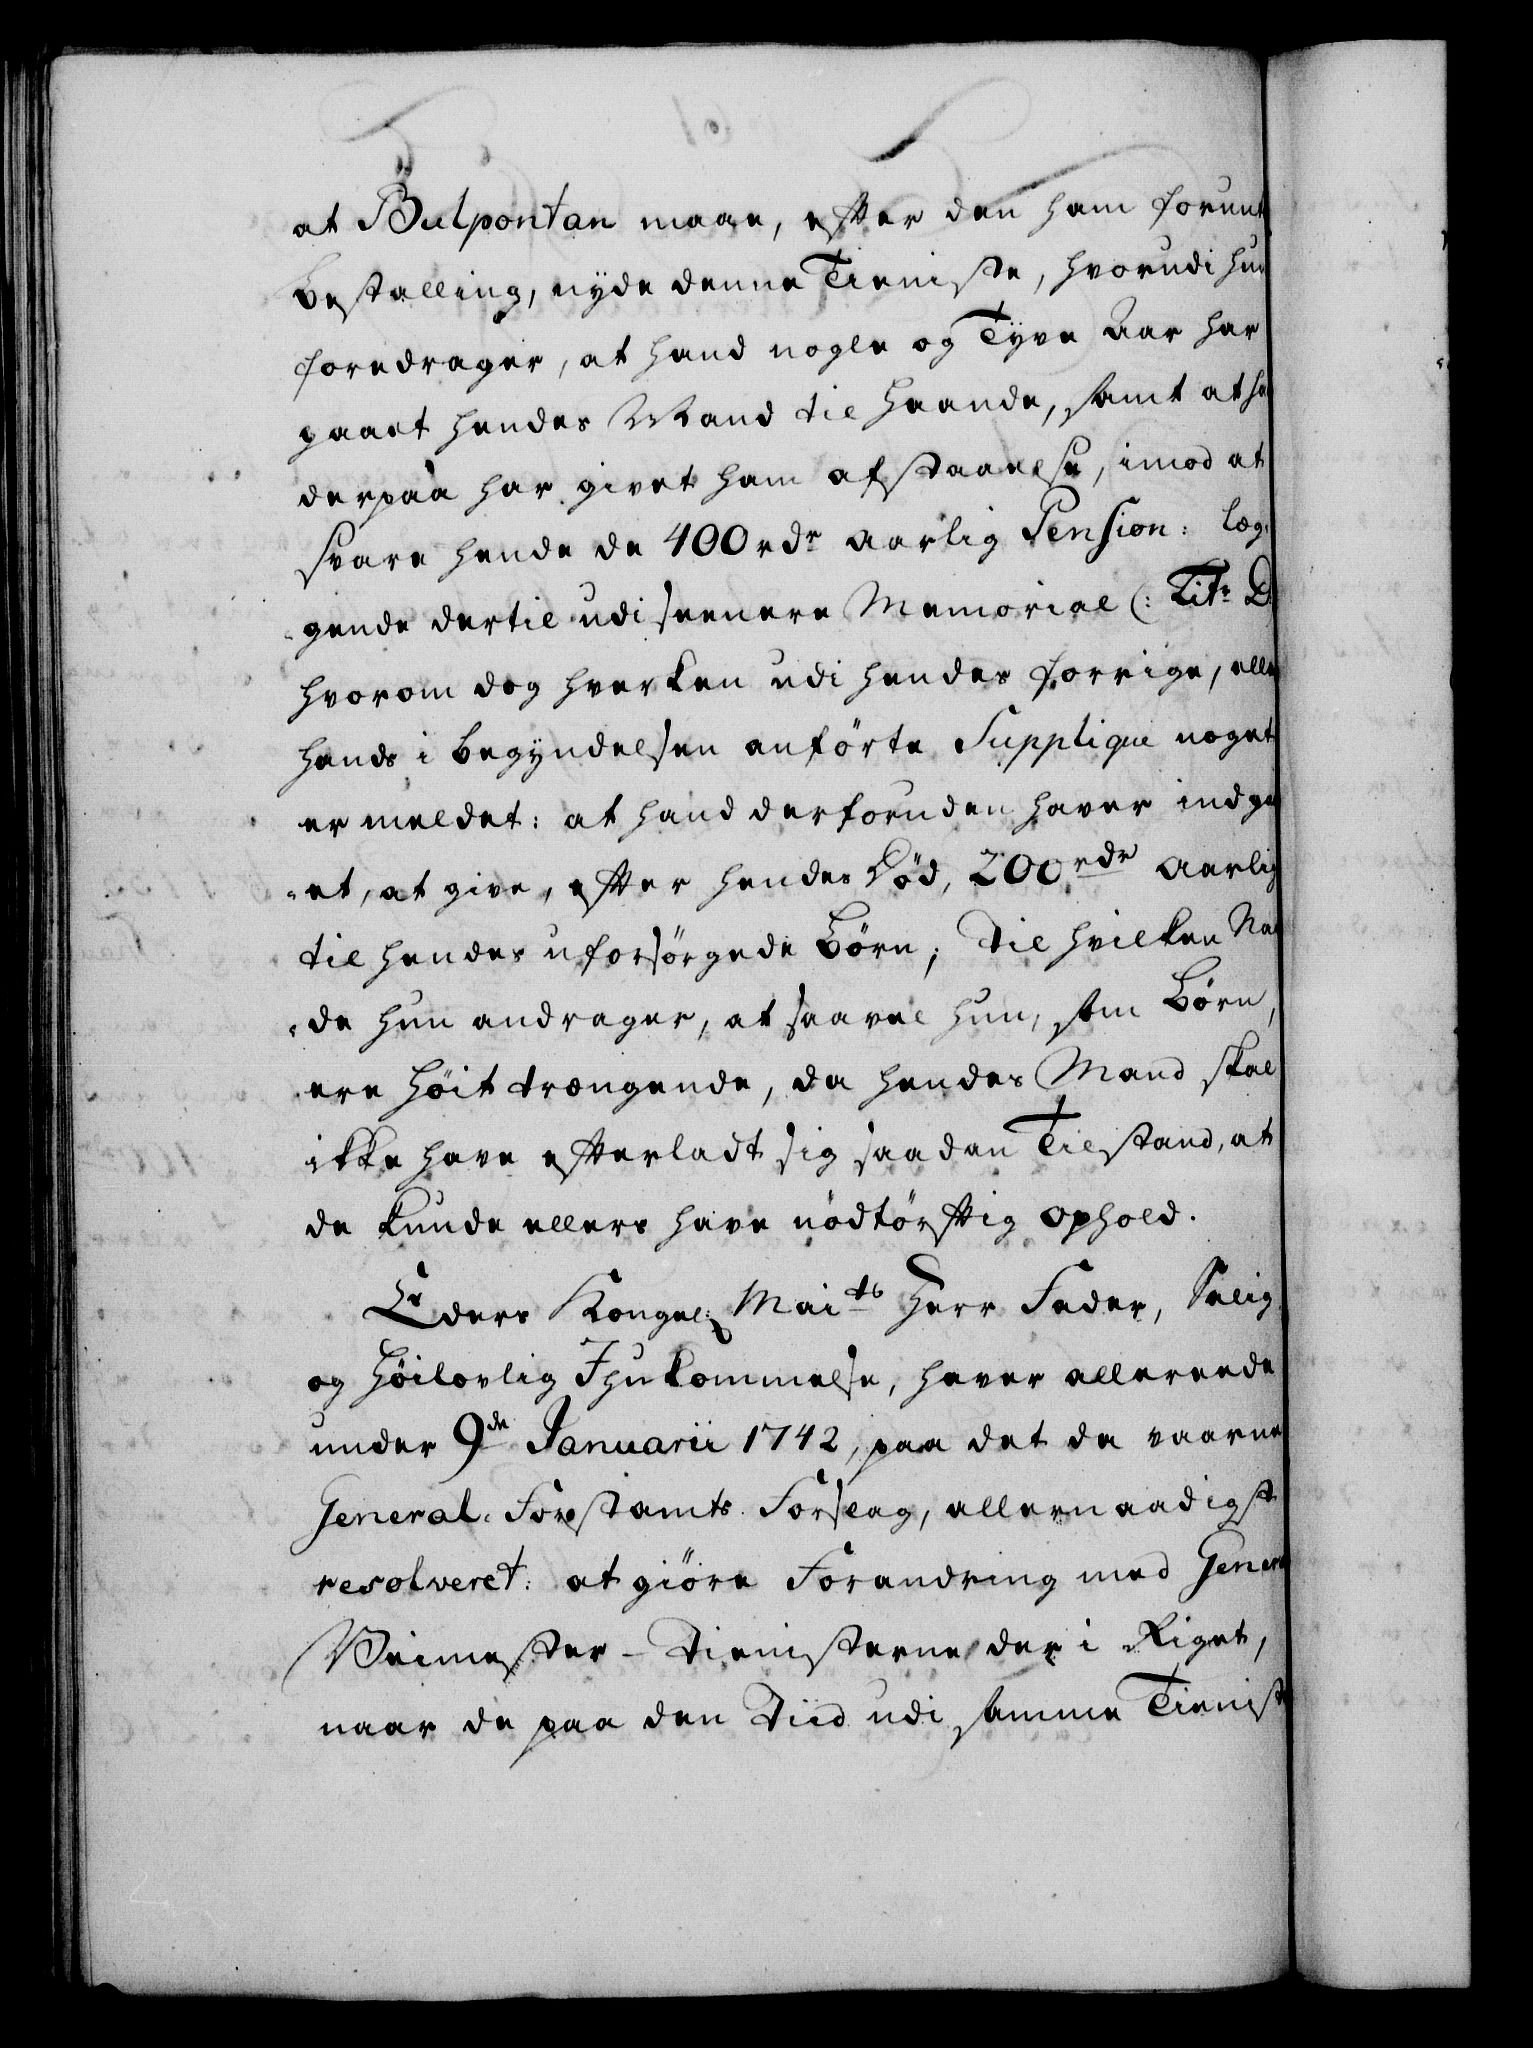 at Bulpontan maae, efter den ham forunt
Bestalling, nyde denne Tieniste, hvorudi hun
foredrager, at hand nogle og Tyve Aar har
gaaet hendes Mand til Haande, samt at ha
derpaa har givet ham afstaaelse, imod at
svare hende de 400 rdr aarlig Pension: læg-
-gende dertil udi seenere Memorial (: Litr D
hvorom dog hverken udi hendes forrige, elle
hands i begyndelsen anførte Supplique noget
er meldet: at hand derforuden haver indga
-et, at give, efter hendes Død, 200 rdr aarlig
til hendes uforsørgede Børn; Til hvilken Naa
-de hun andrager, at saavel hun, som Børn,
ere høit trængende, da hendes Mand skal
ikke have efterladt sig saadan Tilstand, at
de kunde ellers have nødtørftig ophold.
Eders Kongel: Maits Herr Fader, Salig
og Høilovlig Ihukommelse, haver allereede
under 9de Januarii 1742, paa det da værne
General-Forstamts Forslag, allernaadigst
resolveret: at giøre Forandring med Genera
Veimester-Tienisterne der i Riget,
naar de paa den Tiid udi samme Tienist